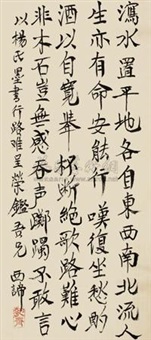 瀉水置平地各自東西南北流人
生亦有命安能行嘆復坐愁酌
酒以自寬舉杯斷絕歌路難心
非木石豈無感吞声躑躅不敢言
以楊氏墨書行路難呈榮鑑吾兄
西諦